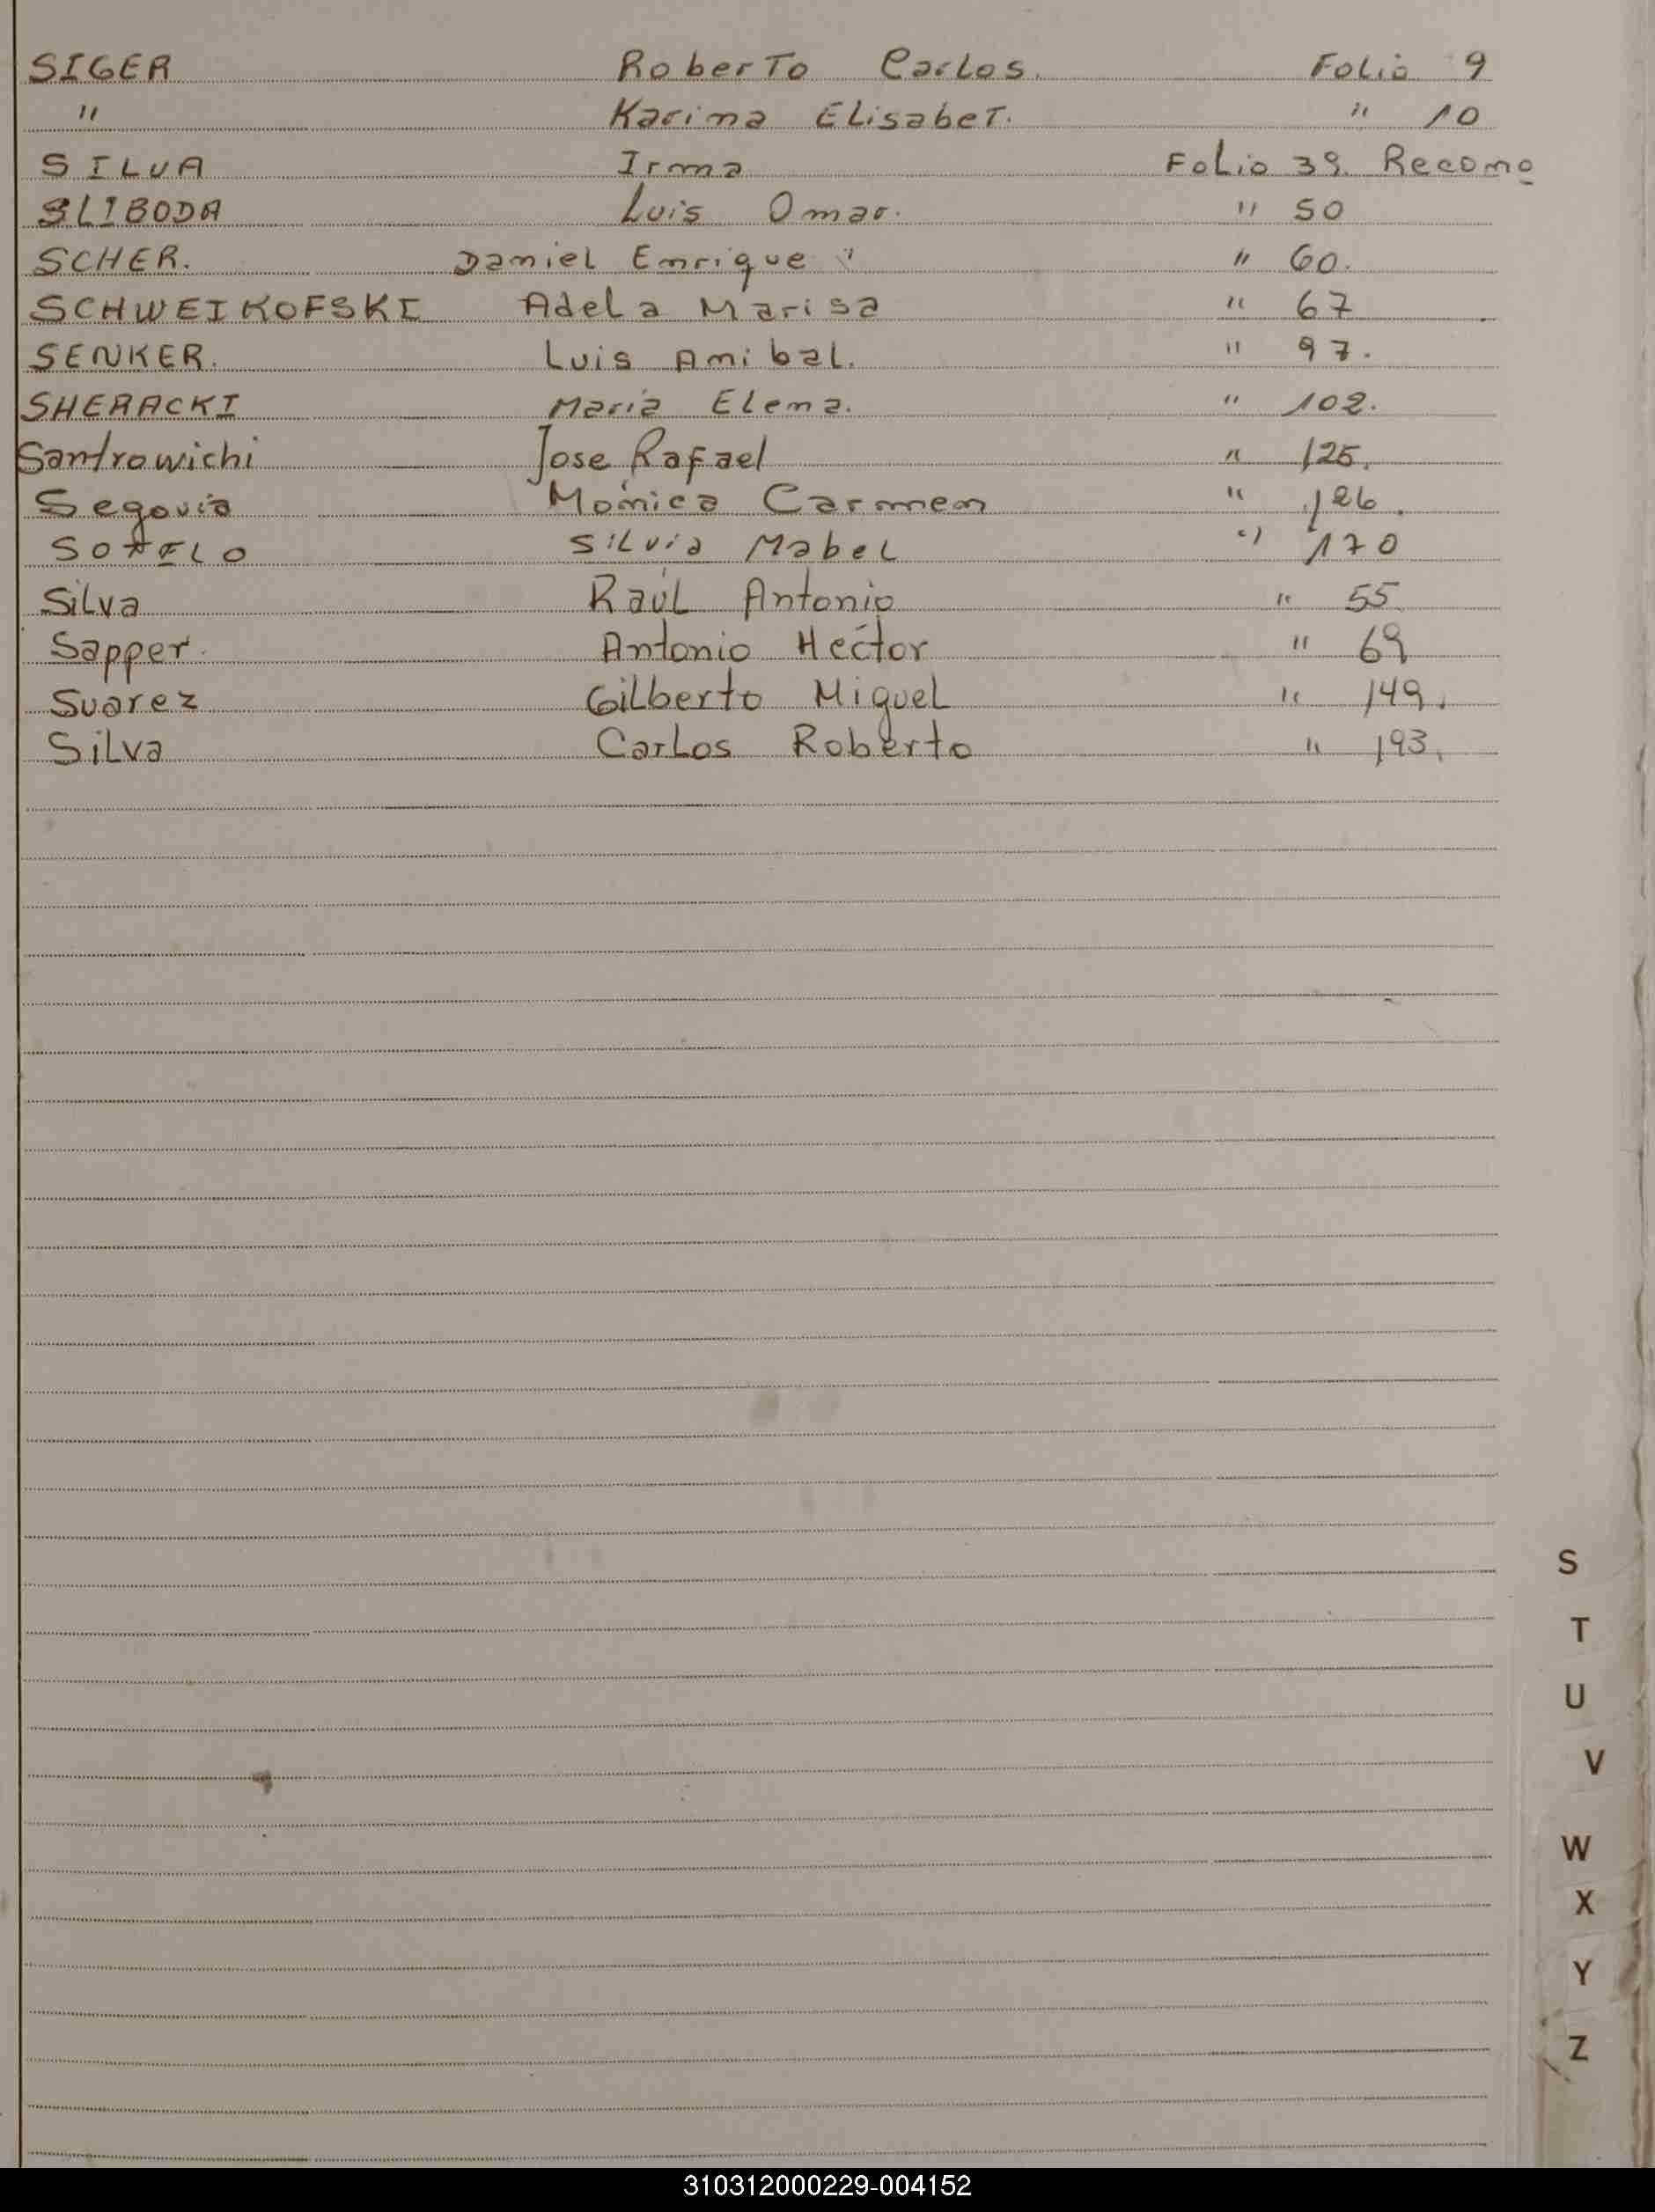 SIGER Roberto Carlos. Folio 9
" Karina Elisabet. " 10
SILVA Irma Folio 39. Recono
SLIBODA Luis Omar. " 50
SCHER. Daniel Enrique " 60.
SCHWEIKOFSKI Adela Marisa " 67
SENKER. Luis Anibal. " 97.
SHERACKI Maria Elena. " 102.
Santrowichi Jose Rafael " 125.
Segovia Monica Carmen " 126.
SOTELO Silvia Mabel " 170
Silva Raúl Antonio " 55
Sapper. Antonio Hector " 69
Suarez Gilberto Miguel " 149.
Silva Carlos Roberto " 193.
S
T
U
V
W
X
Y
Z
310312000229-004152